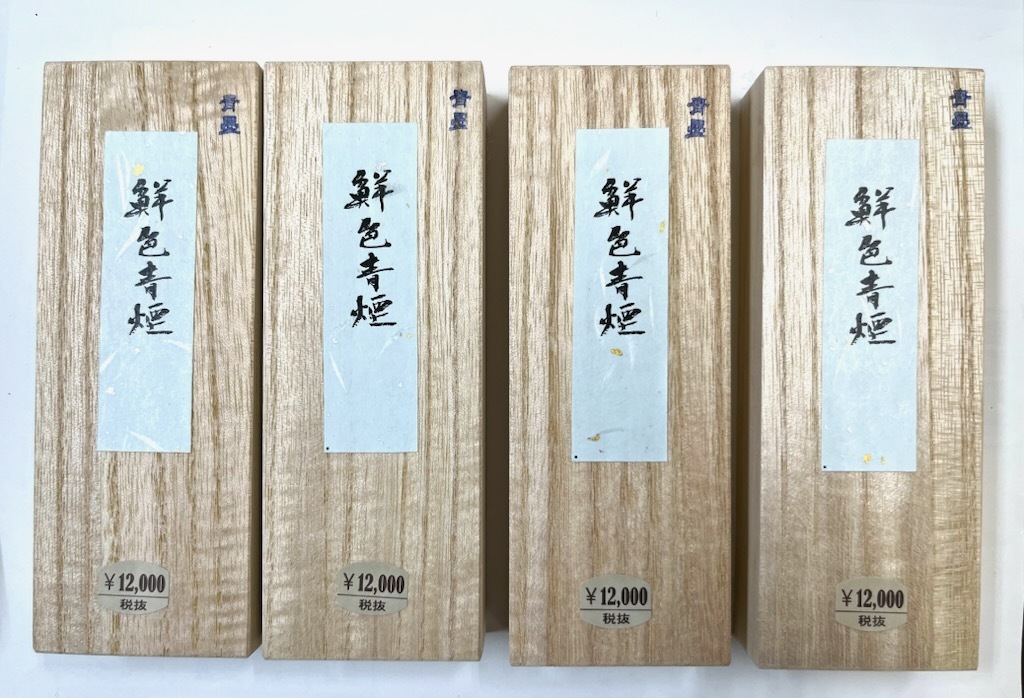 青墨
鮮色青煙
¥12,000
税抜
青墨
鮮色青煙
¥12,000
税抜
青墨
鮮色青煙
¥12,000
税抜
青墨
鮮色青煙
¥12,000
税抜